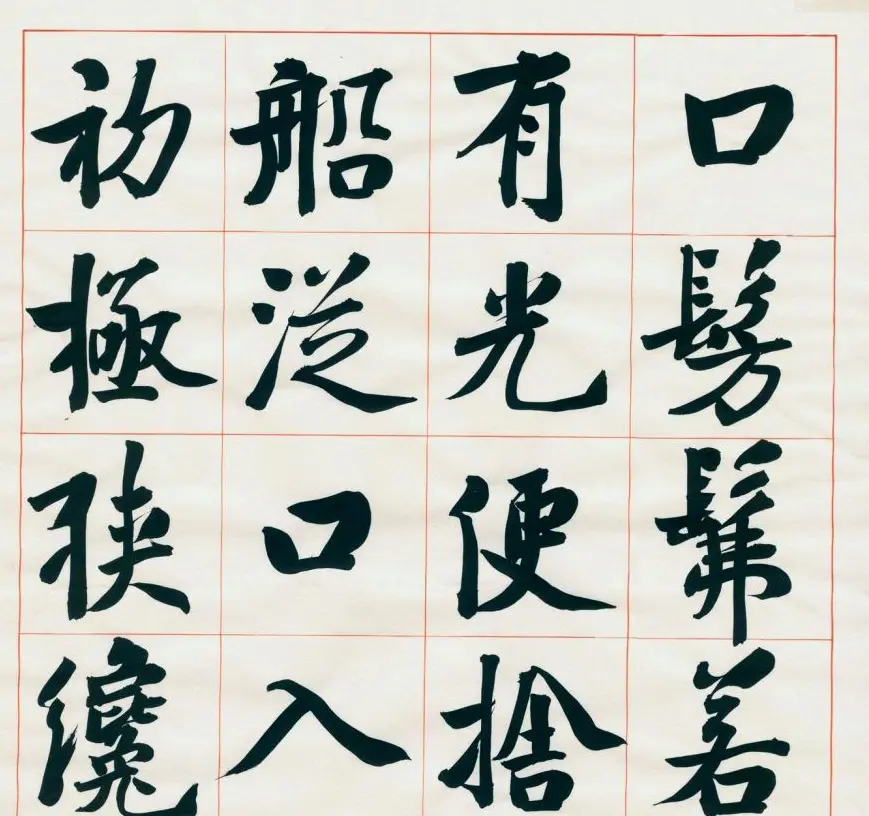 口髣髴若
有光便捨
船從口入
初極狹纔